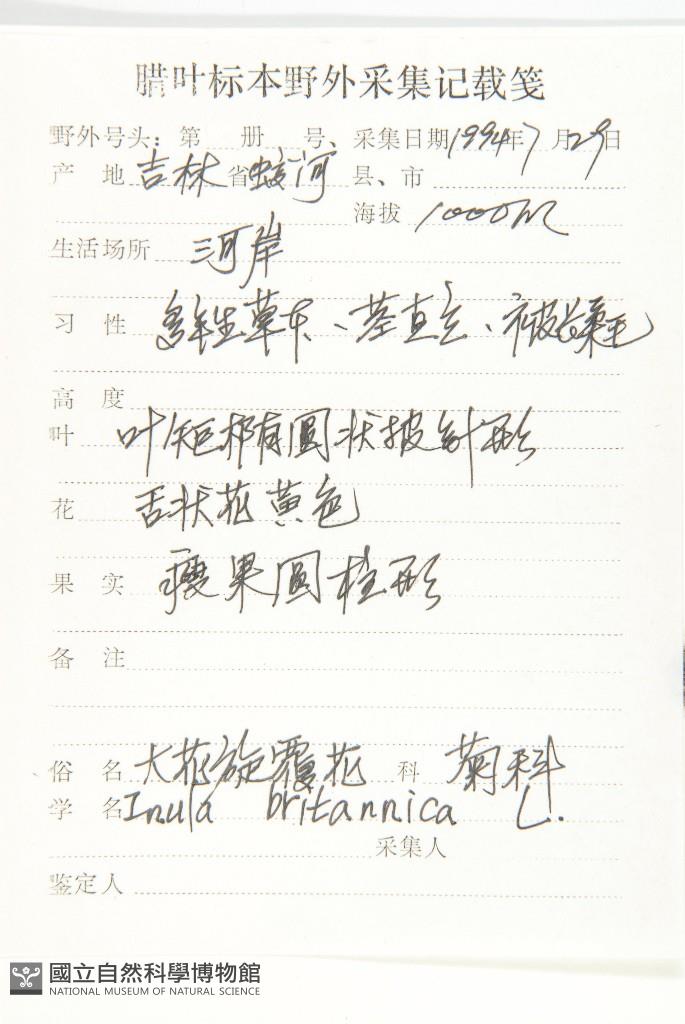 腊叶标本野外采集记载笺
野外号头：第 册 号、采集日期1994年7月29日
产 地 吉林省蛟河 县、市
海拔 1000m
生活场所 河岸
习 性 多年生草本、茎直立、被长柔毛
高 度
叶 叶矩椭圆状披针形
花 舌状花黄色
果 实 瘦果圆柱形
备 注
俗 名 大花旋覆花 科 菊科
学 名 Inula britannica L.
采集人
鉴定人
國立自然科學博物館
NATIONAL MUSEUM OF NATURAL SCIENCE